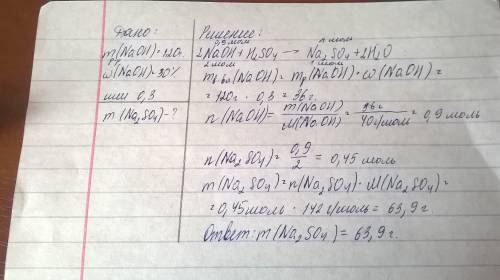 Дано:
mр(NaOH)=120г.
ω(NaOH)=30%
или 0,3
m(Na2SO4)-?
Решение:
0,9моль x моль
2NaOH + H2SO4 → Na2SO4 + 2H2O
2моль 1моль
mв-ва(NaOH)= mр(NaOH)·ω(NaOH)=
=120г · 0,3 = 36г.
n(NaOH)= m(NaOH)/M(NaOH) = 36г/40г/моль = 0,9 моль
n(Na2SO4)= 0,9/2 = 0,45 моль
m(Na2SO4)=n(Na2SO4)·M(Na2SO4)=
=0,45моль · 142г/моль = 63,9г
Ответ: m(Na2SO4) = 63,9г.